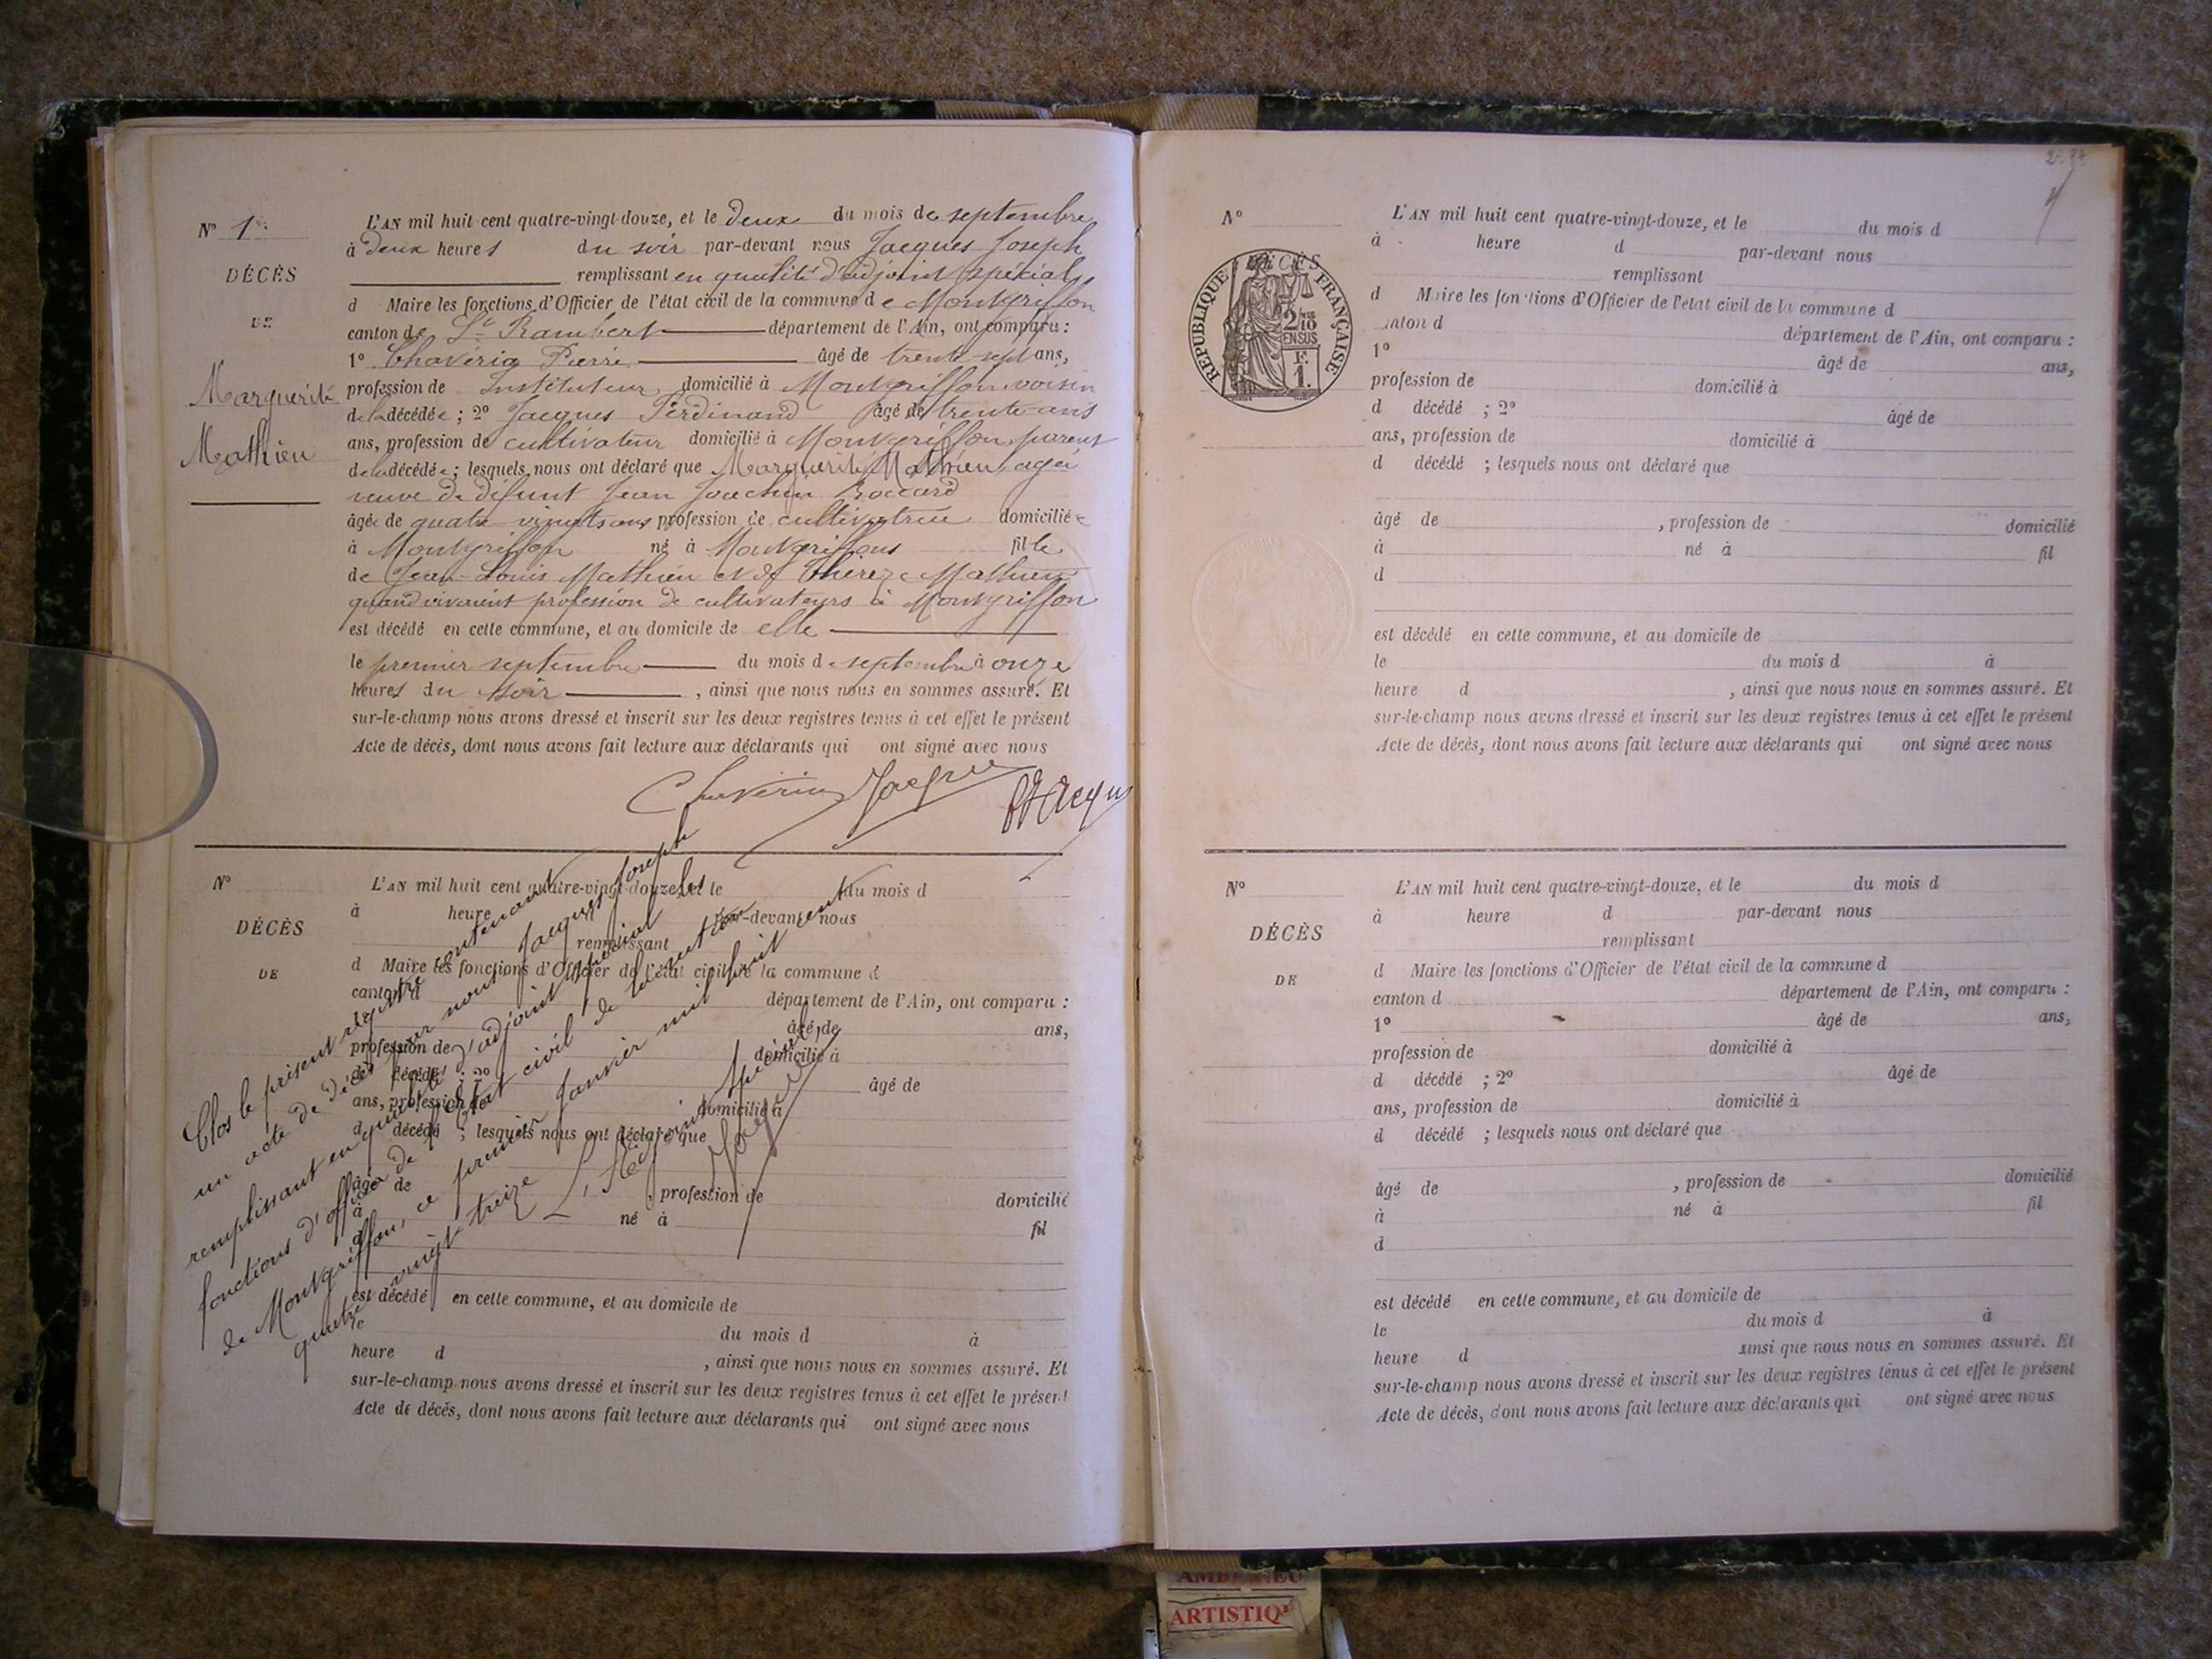 N° 1
DÉCÈS
DE
Marguerite
Mathieu
L'AN mil huit cent quatre-vingt-douze, et le deux du mois de septembre
à deux heures du soir par-devant nous Jacques Joseph
remplissant en qualité d'adjoint spécial
d Maire les fonctions d'Officier de l'état civil de la commune de Montgriffon
canton de St Rambert département de l'Ain, ont comparu :
1° Chaverin Pierre âgé de trente-sept ans,
profession de Instituteur domicilié à Montgriffon voisin
de la décédée ; 2° Jacques Ferdinand âgé de trente ans
ans, profession de cultivateur domicilié à Montgriffon, parent
de la décédée ; lesquels nous ont déclaré que Marguerite Mathieu agée
veuve de défunt Jean Joachim Boccard
âgée de quatre vingts ans profession de cultivatrice domiciliée
à Montgriffon né à Montgriffons fille
de Jean-Louis Mathieu et de Thérèze Mathieu
quand vivaient profession de cultivateurs à Montgriffon
est décédé en cette commune, et au domicile de elle
le premier septembre du mois de septembre à onze
heures du soir , ainsi que nous nous en sommes assuré. Et
sur-le-champ nous avons dressé et inscrit sur les deux registres tenus à cet effet le présent
Acte de décès, dont nous avons fait lecture aux déclarants qui ont signé avec nous
Chaverin Jacques
Jacques
N°
DÉCÈS
DE
L'AN mil huit cent quatre-vingt-douze, et le du mois d
à heure d par-devant nous
remplissant
d Maire les fonctions d'Officier de l'état civil de la commune d
canton d département de l'Ain, ont comparu :
1° âgé de ans,
profession de domicilié à
d décédé ; 2° âgé de
ans, profession de domicilié à
d décédé ; lesquels nous ont déclaré que
âgé de , profession de domicilié
à né à fil
d
est décédé en cette commune, et au domicile de
le du mois d à
heure d , ainsi que nous nous en sommes assuré. Et
sur-le-champ nous avons dressé et inscrit sur les deux registres tenus à cet effet le présent
Acte de décès, dont nous avons fait lecture aux déclarants qui ont signé avec nous
Clos le présent registre contenant
un acte de décès par nous Jacques Joseph
remplissant en qualité d'adjoint spécial les
fonctions d'officier de l'état civil de la section
de Montgriffon, ce premier Janvier mil huit cent
quatre vingt treize
L'Adjoint Spécial,
Jacques
N°
RÉPUBLIQUE FRANÇAISE
2/10 EN SUS
F. 1.
DÉCÈS
L'AN mil huit cent quatre-vingt-douze, et le du mois d
à heure d par-devant nous
remplissant
d Maire les fonctions d'Officier de l'état civil de la commune d
canton d département de l'Ain, ont comparu :
1° âgé de ans,
profession de domicilié à
d décédé ; 2° âgé de
ans, profession de domicilié à
d décédé ; lesquels nous ont déclaré que
âgé de , profession de domicilié
à né à fil
d
est décédé en cette commune, et au domicile de
le du mois d à
heure d , ainsi que nous nous en sommes assuré. Et
sur-le-champ nous avons dressé et inscrit sur les deux registres tenus à cet effet le présent
Acte de décès, dont nous avons fait lecture aux déclarants qui ont signé avec nous
N°
DÉCÈS
DE
L'AN mil huit cent quatre-vingt-douze, et le du mois d
à heure d par-devant nous
remplissant
d Maire les fonctions d'Officier de l'état civil de la commune d
canton d département de l'Ain, ont comparu :
1° âgé de ans,
profession de domicilié à
d décédé ; 2° âgé de
ans, profession de domicilié à
d décédé ; lesquels nous ont déclaré que
âgé de , profession de domicilié
à né à fil
d
est décédé en cette commune, et au domicile de
le du mois d à
heure d ainsi que nous nous en sommes assuré. Et
sur-le-champ nous avons dressé et inscrit sur les deux registres tenus à cet effet le présent
Acte de décès, dont nous avons fait lecture aux déclarants qui ont signé avec nous
ARTISTIQ